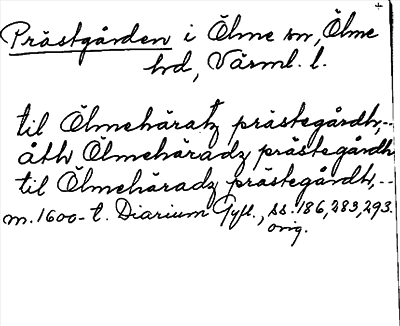 Prästgården i Ölme sn, Ölme
hd, Värml. l.
til Ölmehäratz prästegårdh,--
åth Ölmehäradz prästegårdh
til Ölmehäradz prästegårdh,--
m. 1600-t. Diarium Gyll., ss. 186, 283, 293.
orig.